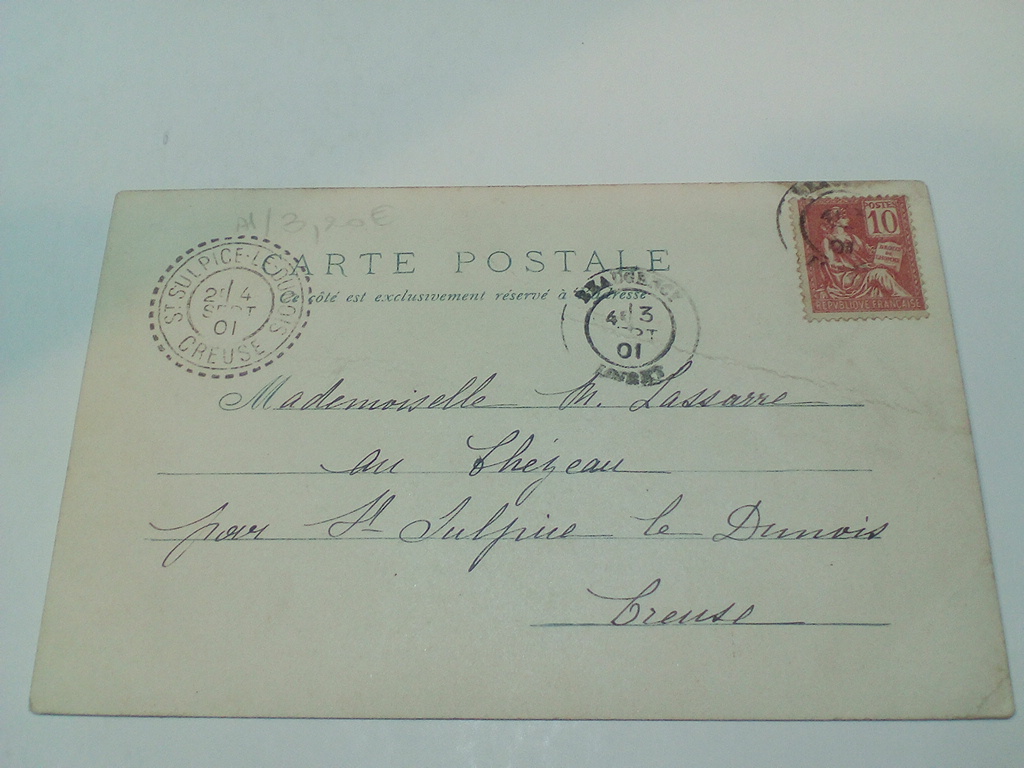 A1/3,20€
CARTE POSTALE
Ce côté est exclusivement réservé à l'adresse
ST SULPICE-LE-DUNOIS
2E/4
SEPT
01
CREUSE
BEAUGENCY
4E/3
SEPT
01
LOIRET
01
POSTES
10
REPUBLIQUE FRANÇAISE
Mademoiselle M. Lassarre
au Thézeau
par St Sulpice le Dunois
Creuse